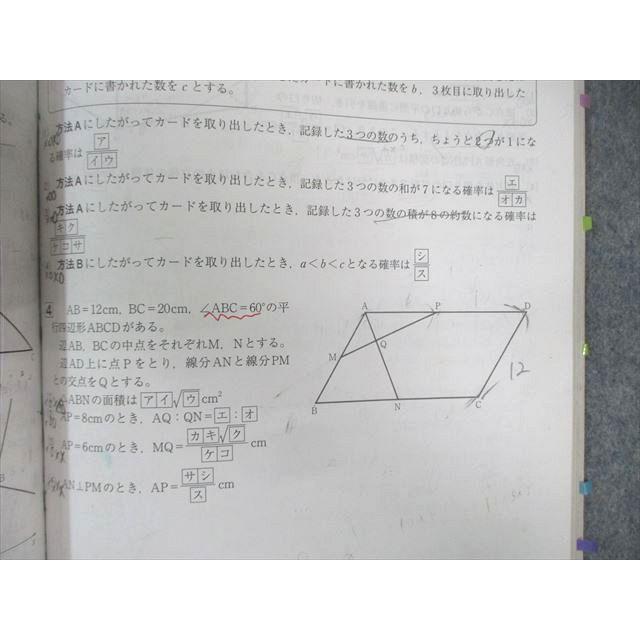 カードに書かれた数をcとする。
ドに書かれた数をb，3枚目に取り出した
方法Aにしたがってカードを取り出したとき，記録した3つの数のうち，ちょうど2つが1にな
る確率は ア/イウ
方法Aにしたがってカードを取り出したとき，記録した3つの数の和が7になる確率は エ/オカ
方法Aにしたがってカードを取り出したとき，記録した3つの数の積が8の約数になる確率は
キク/ケコサ
方法Bにしたがってカードを取り出したとき，a＜b＜cとなる確率は シ/ス
4 AB=12cm，BC=20cm，∠ABC=60°の平
行四辺形ABCDがある。
辺AB，BCの中点をそれぞれM，Nとする。
辺AD上に点Pをとり，線分ANと線分PM
との交点をQとする。
ABNの面積は アイ√ウ cm²
AP=8cmのとき，AQ：QN= エ：オ
AP=6cmのとき，MQ= カキ√ク/ケコ cm
AN⊥PMのとき，AP= サシ/ス cm
A
P
D
M
Q
B
N
C
12